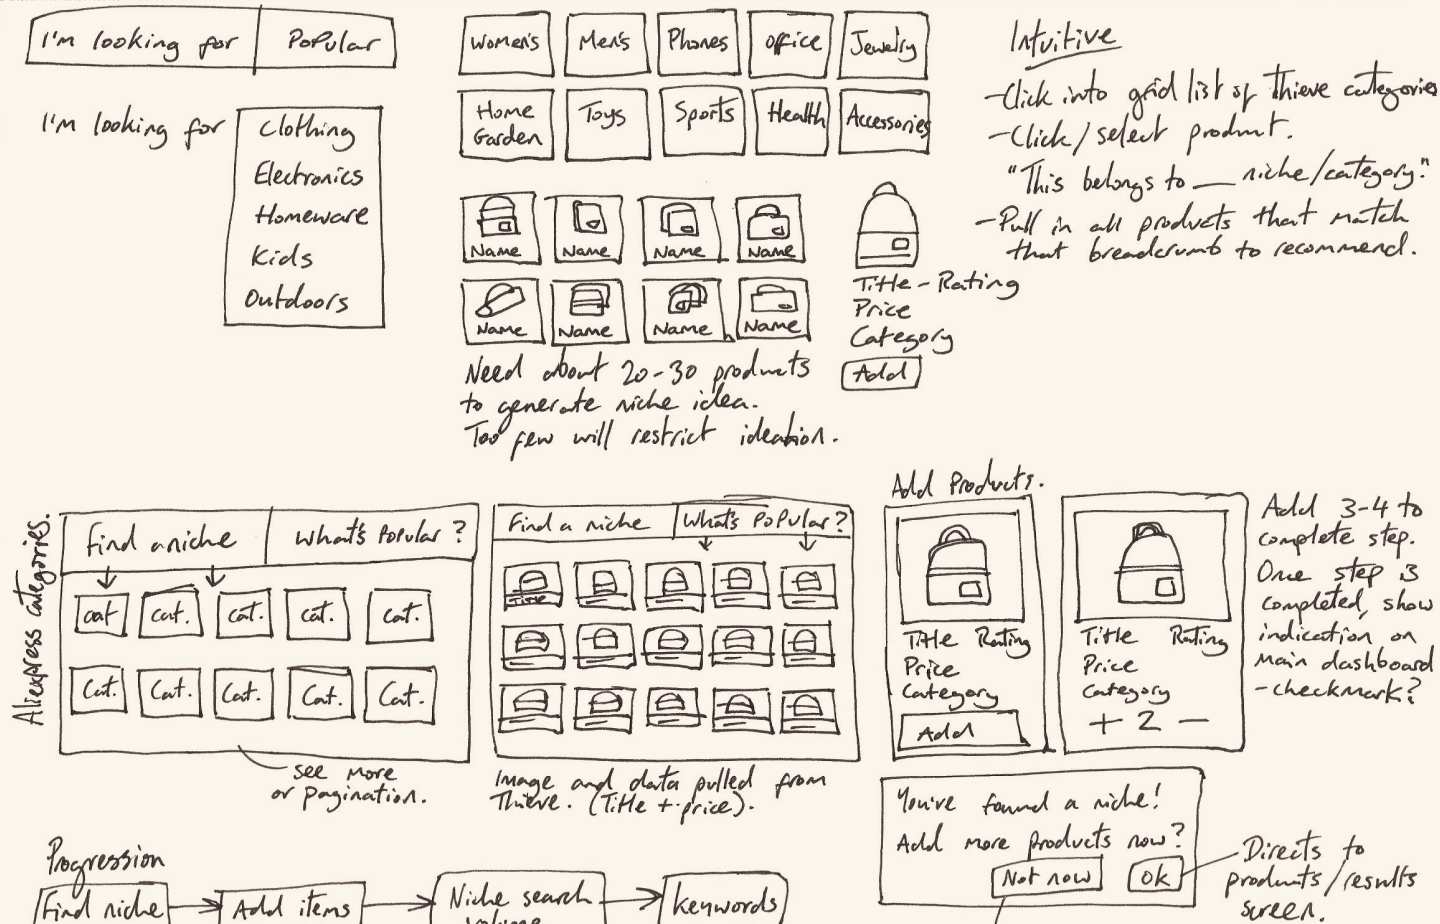 I'm looking for
Popular
I'm looking for
Clothing
Electronics
Homeware
Kids
Outdoors
Women's
Men's
Phones
Office
Jewelry
Home
Garden
Toys
Sports
Health
Accessories
Name
Name
Name
Name
Name
Name
Name
Name
Need about 20-30 products
to generate niche idea.
Too few will restrict ideation.
Title - Rating
Price
Category
Add
Intuitive
- Click into grid list of Thieve categories
- Click/select product.
"This belongs to __ niche/category."
- Pull in all products that match
that breadcrumb to recommend.
Aliexpress categories.
Find a niche
What's Popular?
cat
cat.
cat.
Cat.
Cat.
Cat.
Cat.
Cat.
Cat.
Cat.
see more
or pagination.
Find a niche
What's Popular?
Title
Image and data pulled from
Thieve. (Title + price).
Add Products.
Title Rating
Price
Category
Add
Title Rating
Price
Category
+ 2 -
Add 3-4 to
complete step.
Once step is
completed, show
indication on
main dashboard
- checkmark?
You've found a niche!
Add more products now?
Not now
Ok
Directs to
products/results
screen.
Progression
Find niche
Add items
Niche search
volume
Keywords